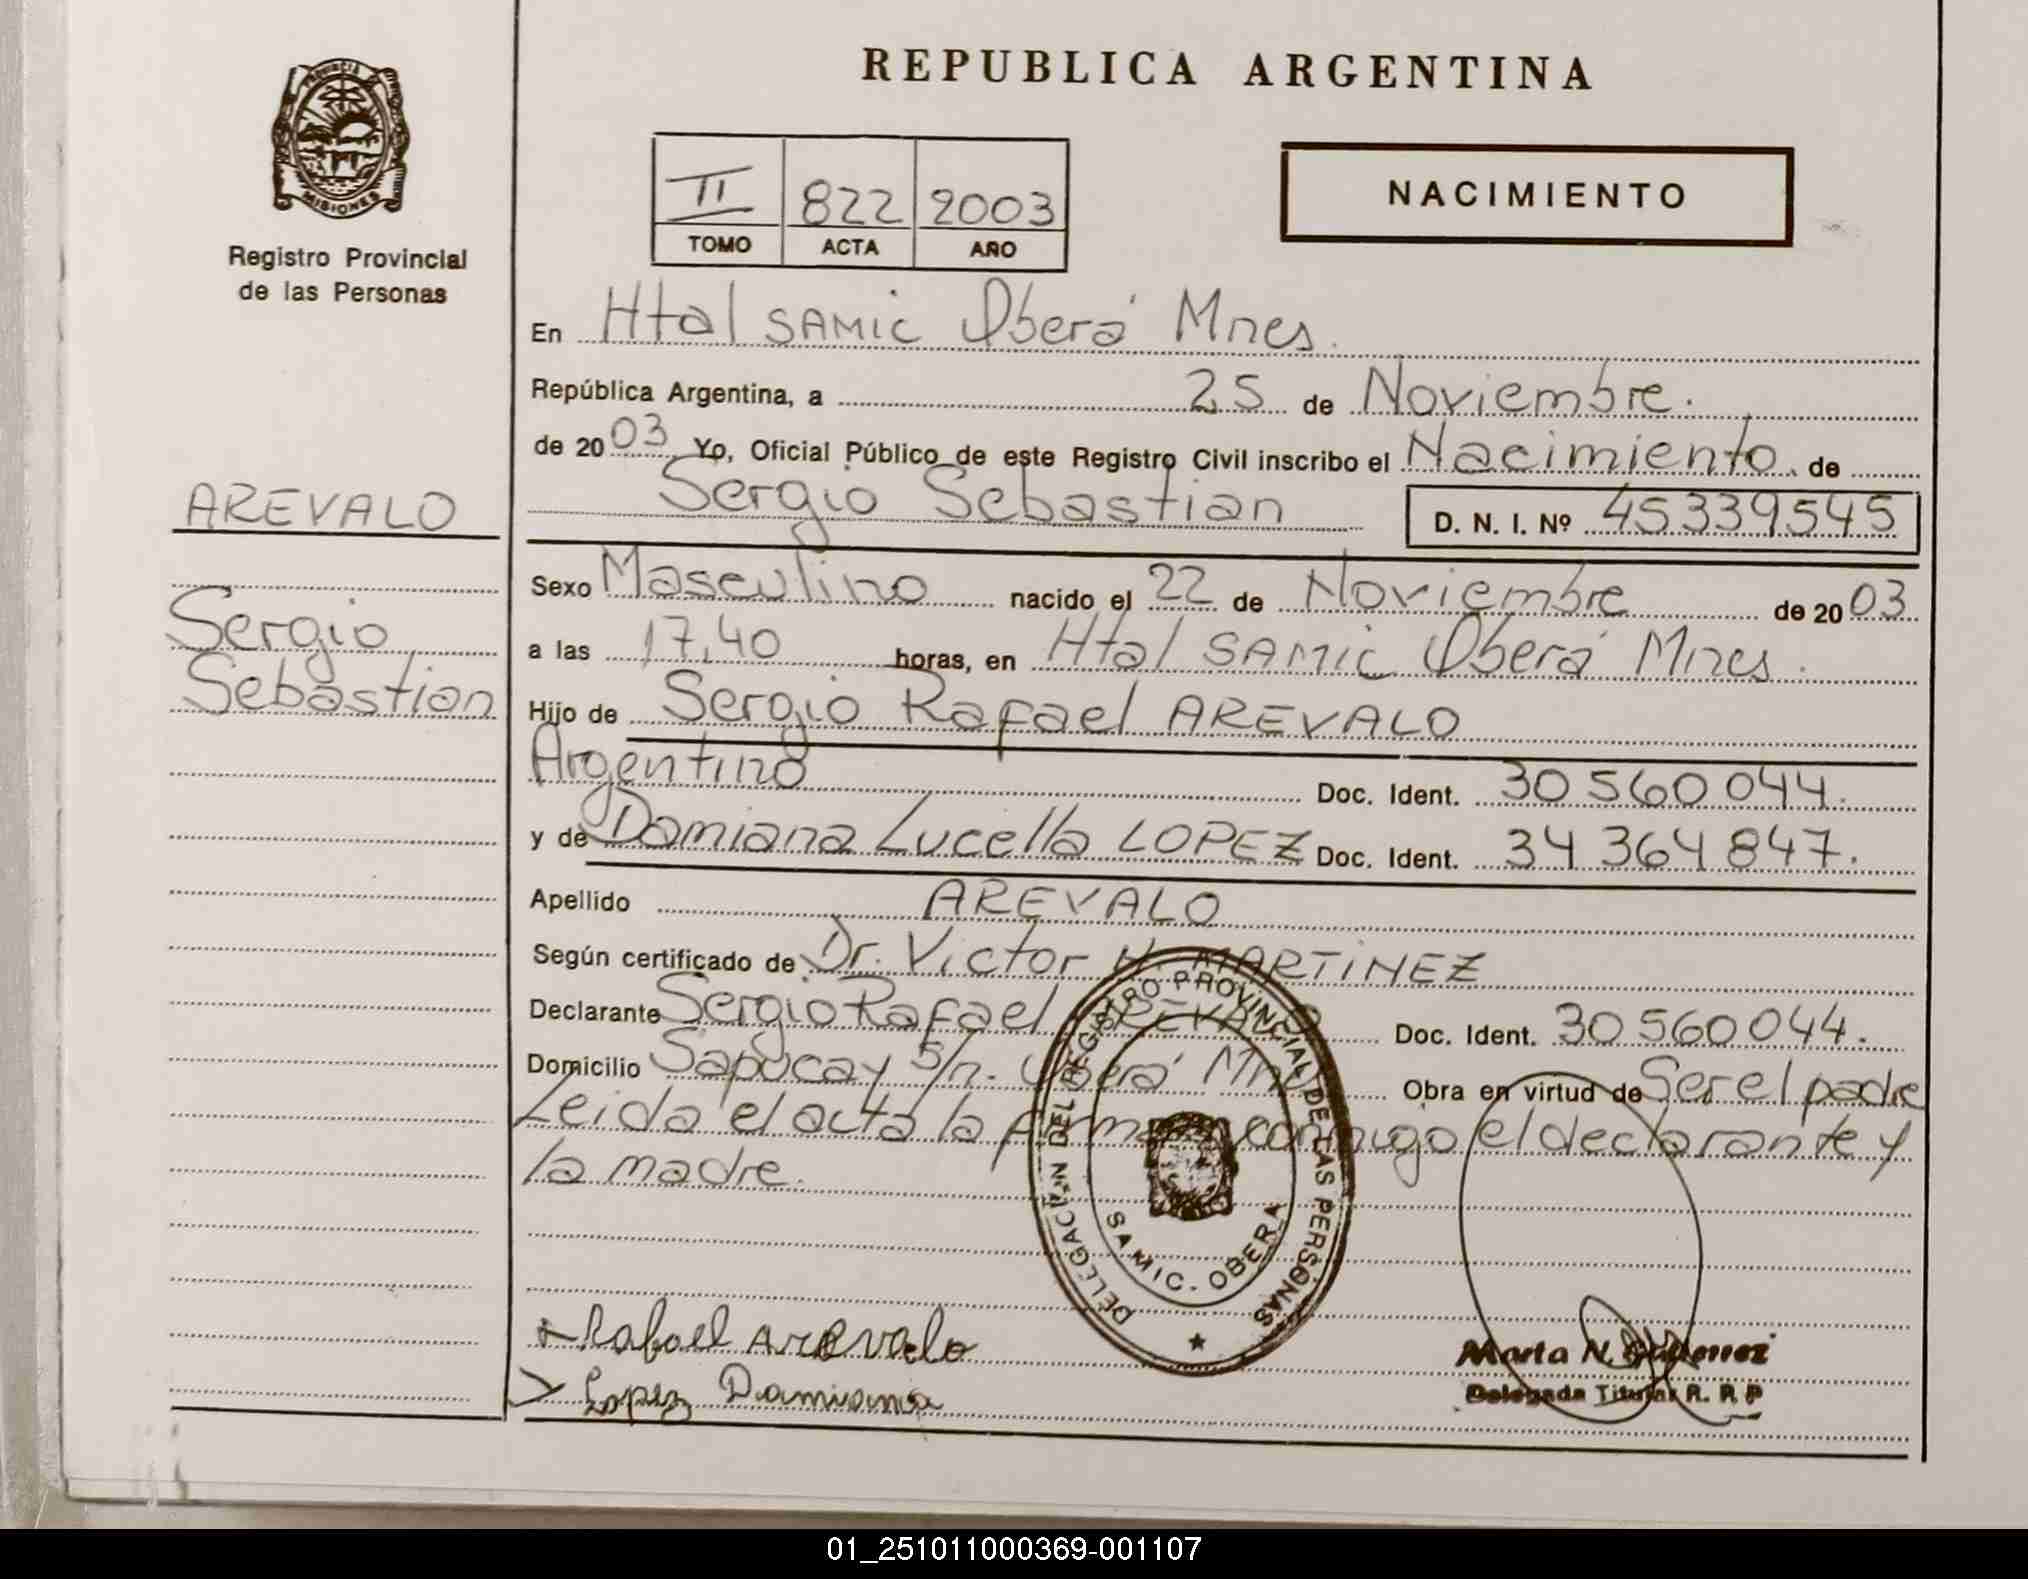 REPUBLICA ARGENTINA
PROVINCIA
MISIONES
Registro Provincial
de las Personas
II 822 2003
TOMO ACTA AÑO
NACIMIENTO
En Htal SAMIC Oberá Mnes.
República Argentina, a 25 de Noviembre.
de 2003 Yo, Oficial Público de este Registro Civil inscribo el Nacimiento de
Sergio Sebastian D. N. I. Nº 45339545
AREVALO
Sergio
Sebastian
Sexo Masculino nacido el 22 de Noviembre de 2003
a las 17,40 horas, en Htal SAMIC Oberá Mnes.
Hijo de Sergio Rafael AREVALO
Argentino Doc. Ident. 30560044.
y de Damiana Lucella LOPEZ Doc. Ident. 34364847.
Apellido AREVALO
Según certificado de Dr. Victor H. MARTINEZ
Declarante Sergio Rafael AREVALO Doc. Ident. 30560044.
Domicilio Sapucay S/n. Oberá Mnes Obra en virtud de Ser el padre
Leida el acta la firman conmigo el declarante y
la madre.
DELEGACION DEL REGISTRO PROVINCIAL DE LAS PERSONAS
SAMIC. OBERA
Rafael Arevalo
Lopez Damiana
Marta N. Gutierrez
Delegada Titular R. P. P
01_251011000369-001107